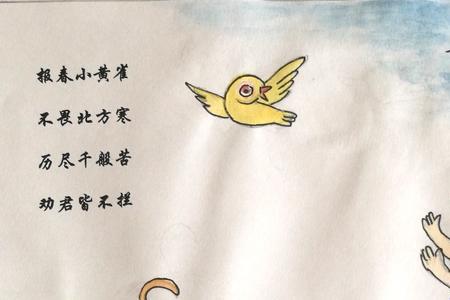 报春小黄雀
不畏北方寒
历尽千般苦
劝君皆不捏